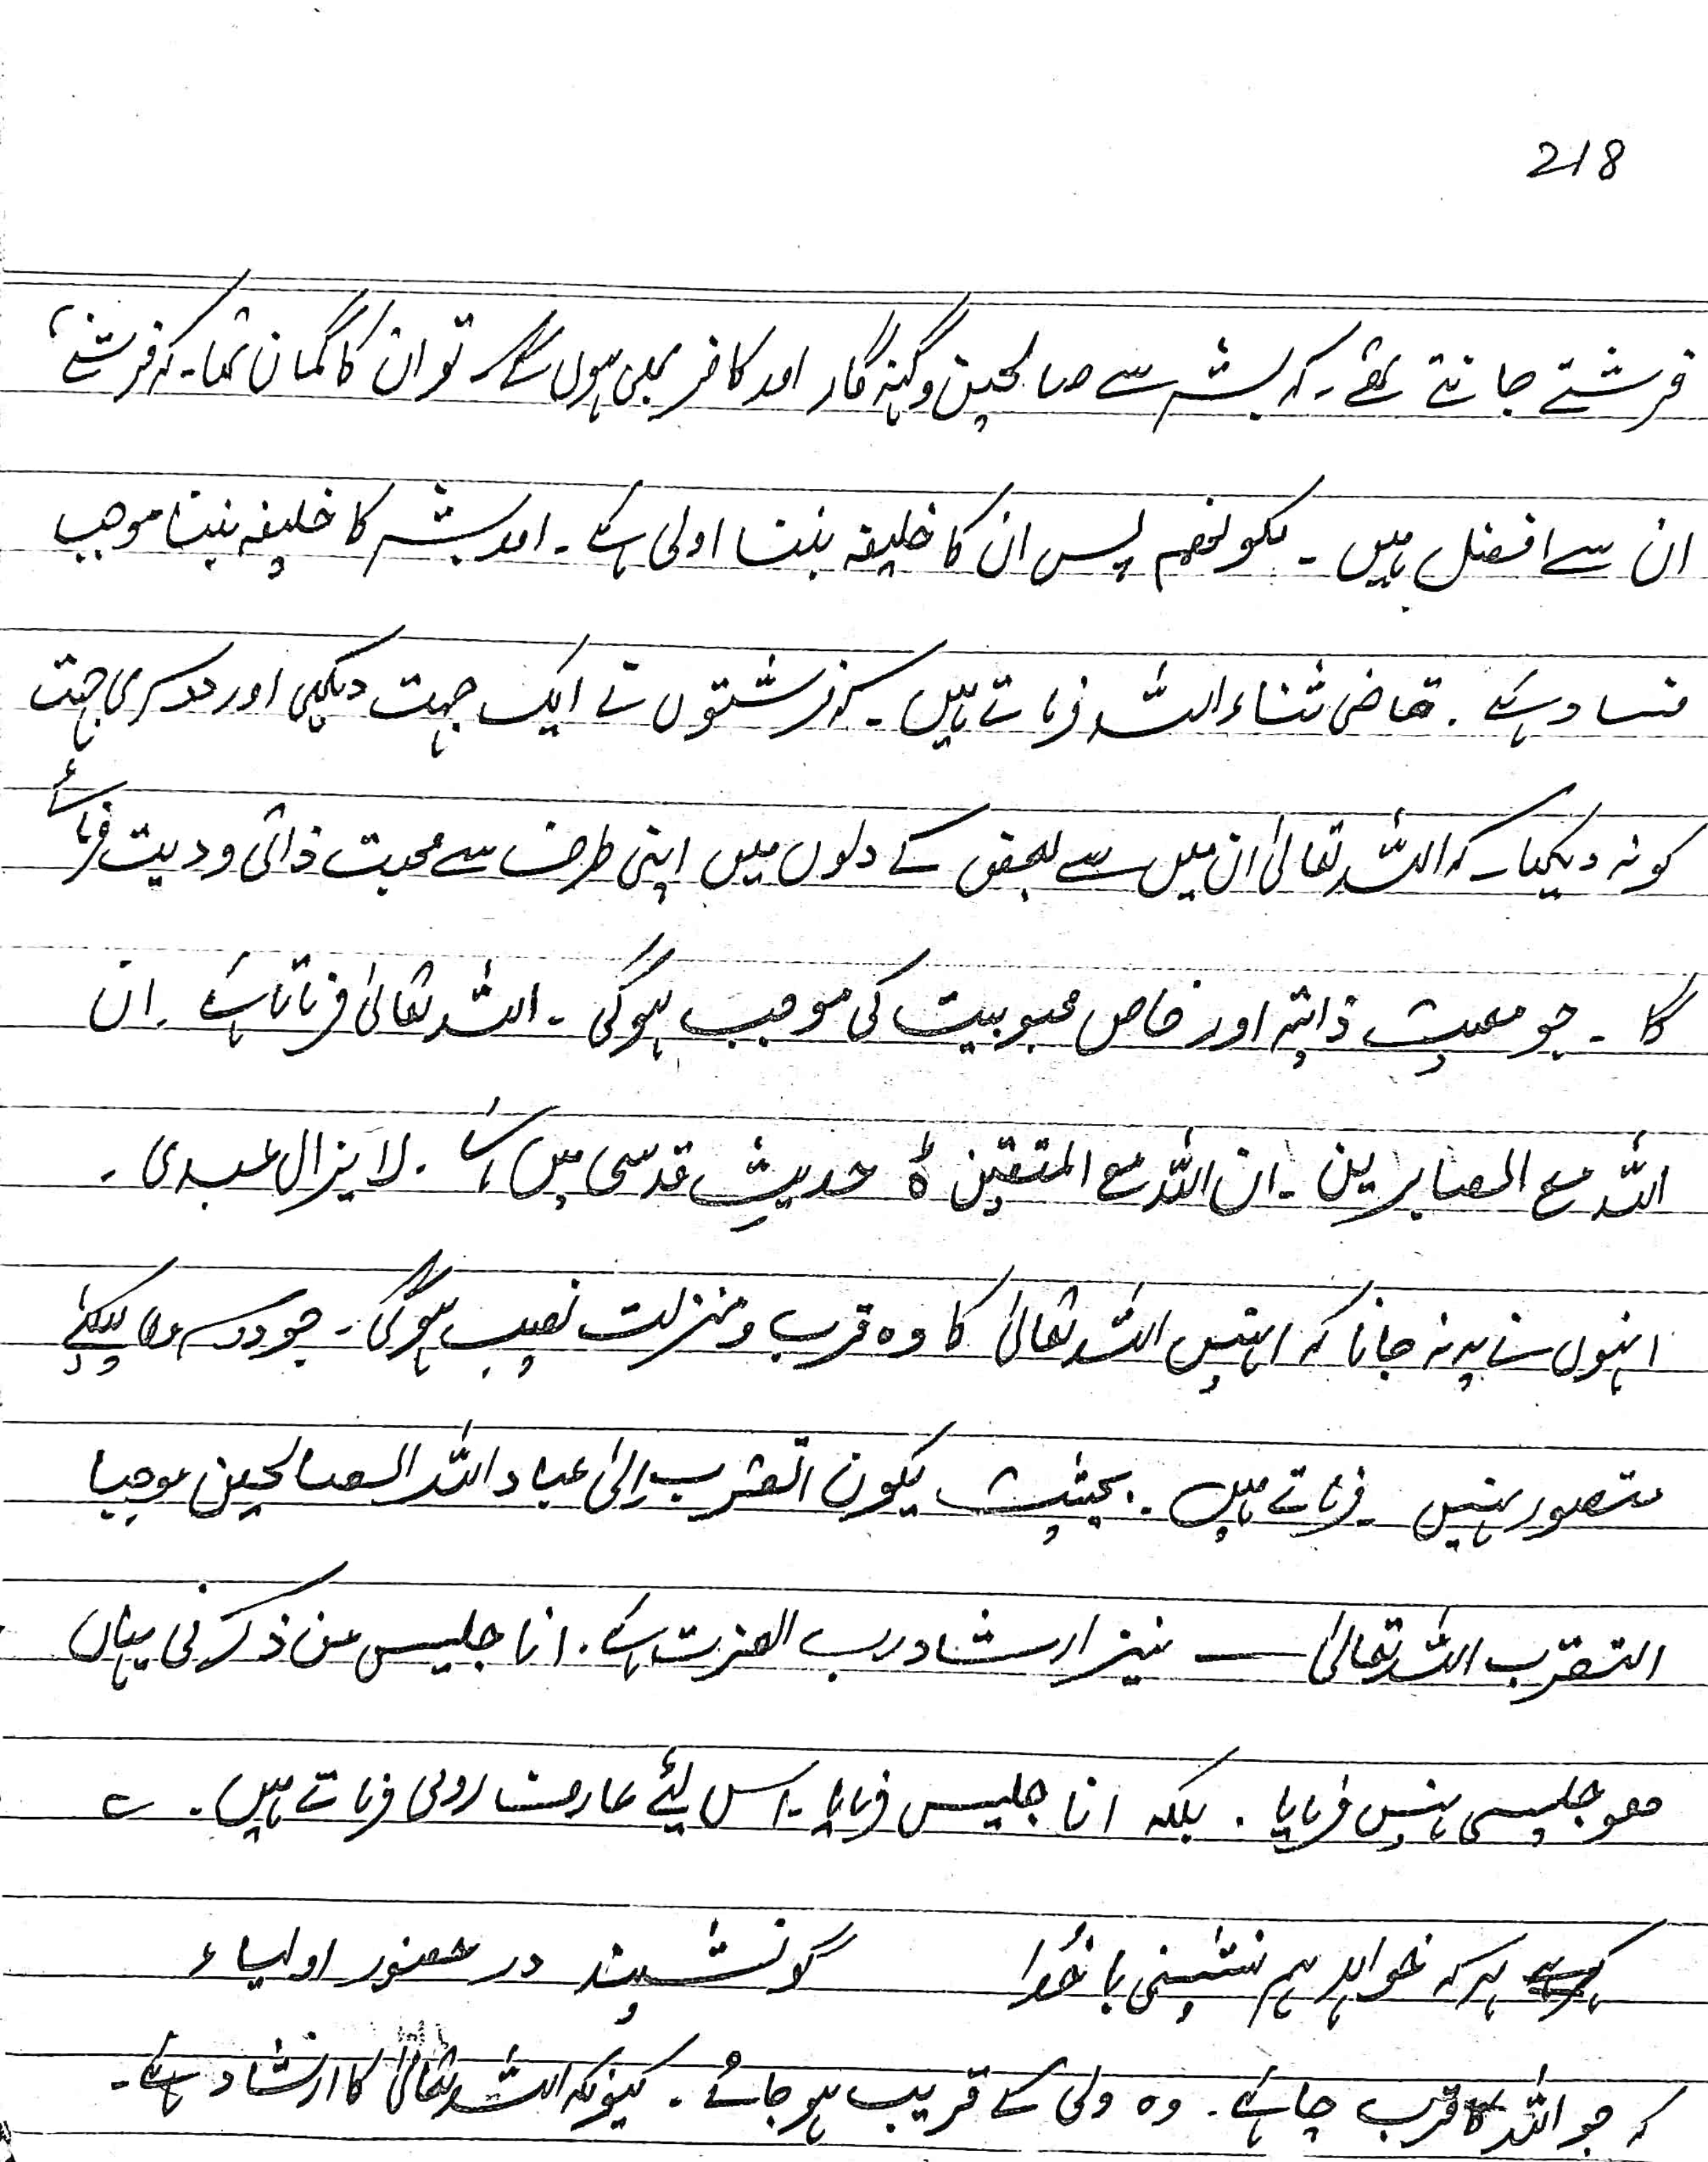 218
فرشتے جانتے تھے۔ کہ بشر سے صالحین وگنہگار اور کافر بھی ہوں گے۔ تو ان کا گمان تھا۔ کہ فرشتے
ان سے افضل ہیں۔ پس ان کا خلیفہ بننا اولی ہے۔ اور بشر کا خلیفہ بننا موجب
فساد ہے۔ قاضی ثناء اللہ فرماتے ہیں۔ کہ فرشتوں نے ایک جہت دیکھی اور دوسری جہت
کو نہ دیکھا۔ کہ اللہ تعالیٰ ان میں سے بعض کے دلوں میں اپنی طرف سے محبت ذاتی ودیت فرمائے
گا۔ جو معیت ذاتیہ اور خاص محبوبیت کی موجب ہوگی۔ اللہ تعالیٰ فرماتا ہے۔ ان
اللہ مع الصابرین۔ ان اللہ مع المتقین ہ حدیثِ قدسی میں ہے۔ لا یزال عبدی۔
انہوں نے یہ نہ جانا کہ انہیں اللہ تعالیٰ کا وہ قرب و منزلت نصیب ہوگی۔ جو دوسروں کیلئے
متصور نہیں۔ فرماتے ہیں۔ بحیث یکون التقرب اِلیٰ عباد اللہ الصالحین موجبا
التقرب اللہ تعالیٰ — نیز ارشاد رب العزت ہے۔ انا جلیس من ذکرنی یہاں
ھو جلیسی نہیں فرمایا۔ بلکہ انا جلیس فرمایا۔ اس لئے عارف رومی فرماتے ہیں۔ ؎
ہر کہ خواہد ہم نشینی با خُدا گو نشیند در حضور اولیاء
کہ جو اللہ کا قرب چاہے۔ وہ ولی کے قریب ہو جائے۔ کیونکہ اللہ تعالیٰ کا ارشاد ہے۔